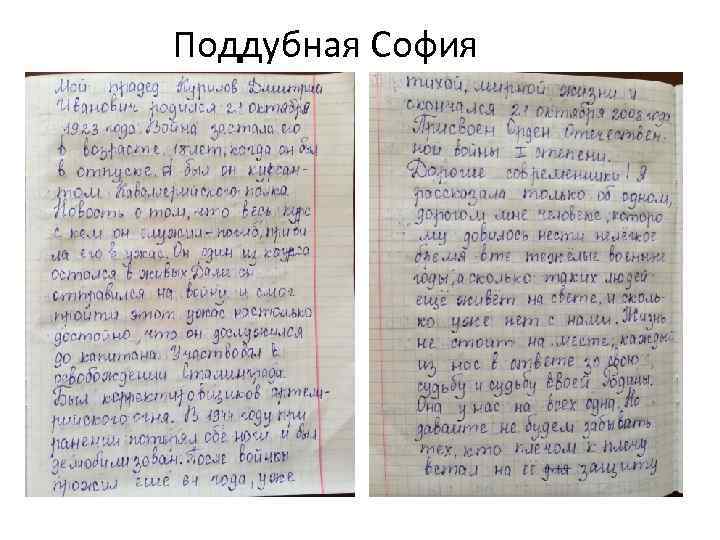 Поддубная София
Мой прадед Курилов Дмитрий
Иванович родился 21 октября
1923 года. Война застала его
в возрасте 18 лет, когда он был
в отпуске. А был он курсан-
том Кавалерийского полка.
Новость о том, что весь курс
с кем он служил - погиб, приве
ла его в ужас. Он один из курса
остался в живых. Дали он
отправился на войну и смог
пройти этот ужас настолько
достойно, что он дослужился
до капитана. Участвовал в
освобождении Сталинграда.
Был корректировщиков артеле-
рийского огня. В 1944 году при
ранении потерял обе ноги и был
демобилизован. После войны
прожил еще 64 года, уже
тихой, мирной жизни и
скончался 21 октября 2008 года
Присвоен Орден Отечествен-
ной войны I степени.
Дорогие современники! Я
рассказала только об одном,
дорогом мне человеке, которо
му довилось нести нелегкое
бремя в те тяжелые военные
годы, а сколько таких людей
ещё живёт на свете, и сколь-
ко уже нет с нами. Жизнь
не стоит на месте, каждый
из нас в ответе за свою
судьбу и судьбу своей Родины.
Она у нас на всех одна. Но
давайте не будем забывать
тех, кто плечом к плечу
встал на её для защиту